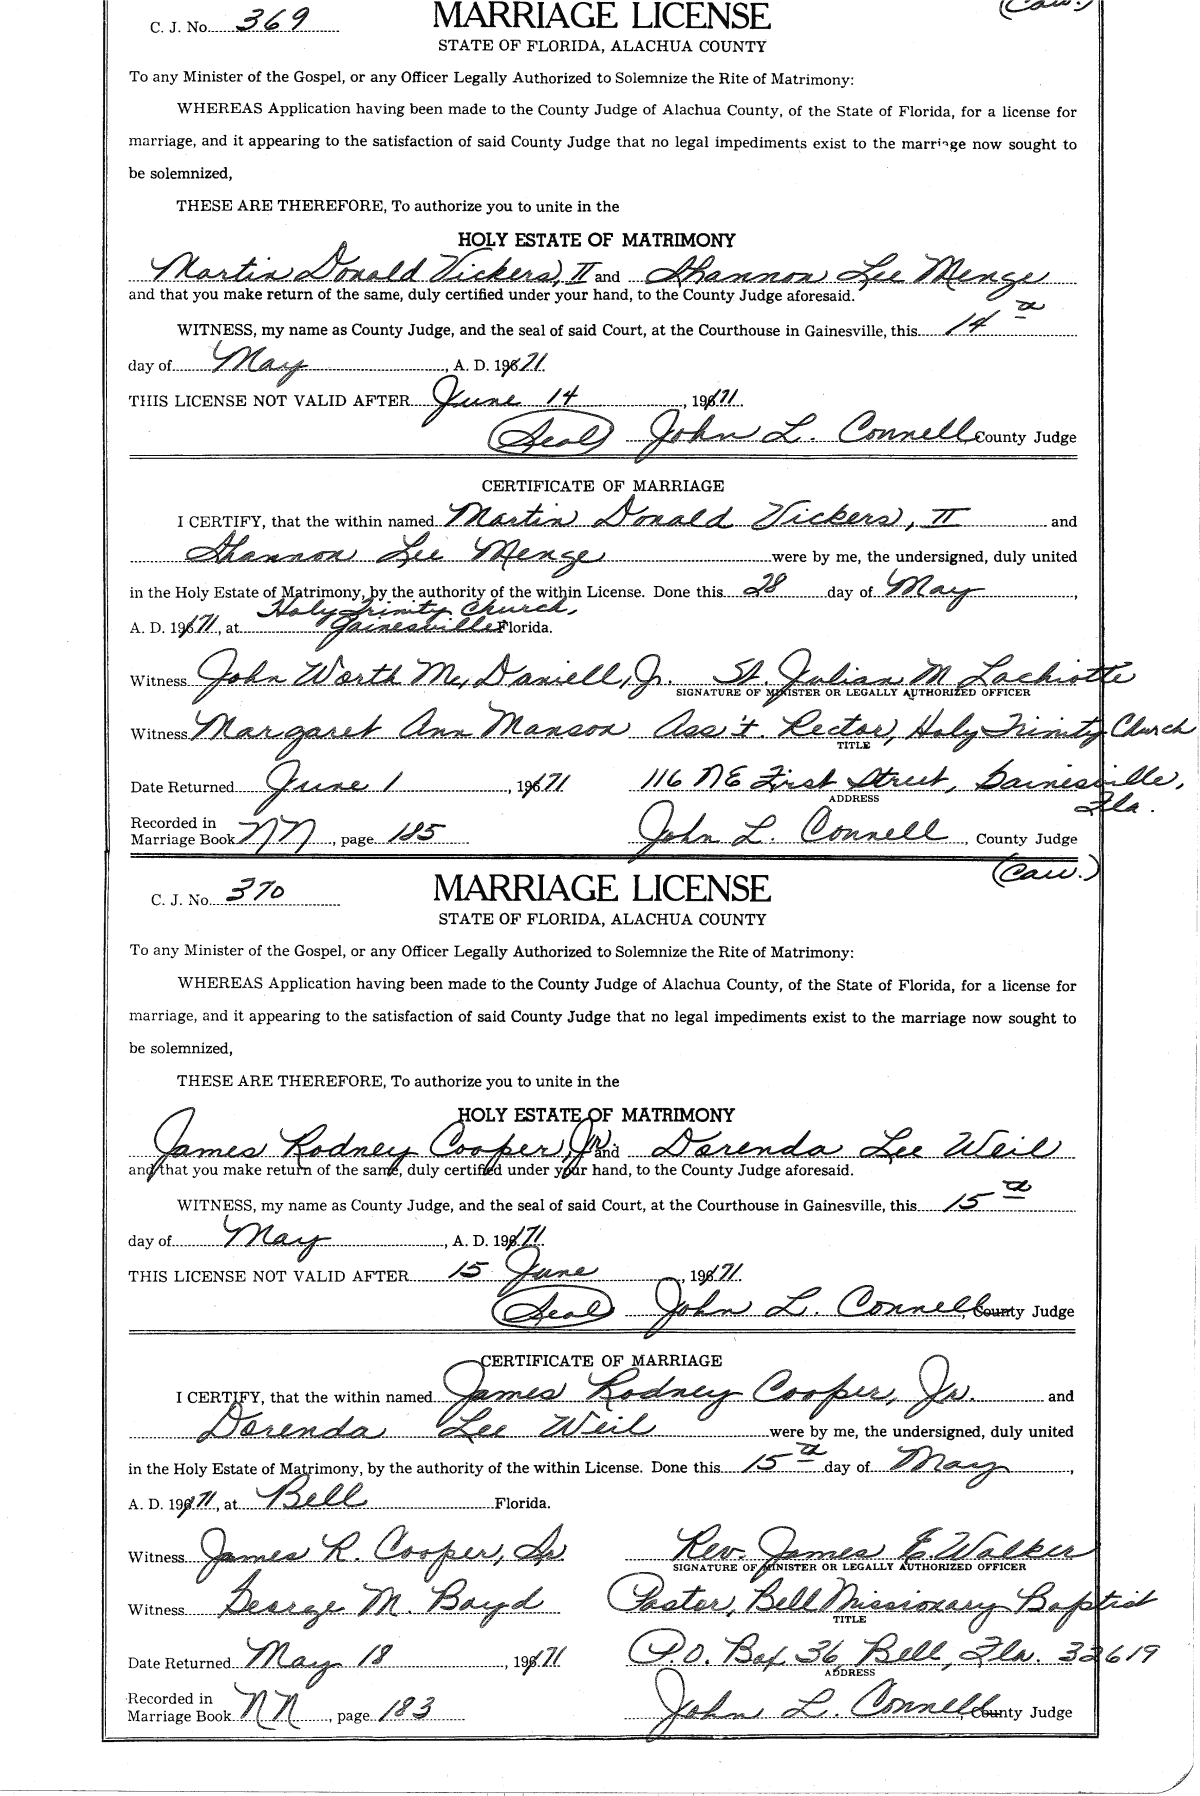 (Caw.)
C. J. No. 369
MARRIAGE LICENSE
STATE OF FLORIDA, ALACHUA COUNTY
To any Minister of the Gospel, or any Officer Legally Authorized to Solemnize the Rite of Matrimony:
WHEREAS Application having been made to the County Judge of Alachua County, of the State of Florida, for a license for
marriage, and it appearing to the satisfaction of said County Judge that no legal impediments exist to the marriage now sought to
be solemnized,
THESE ARE THEREFORE, To authorize you to unite in the
HOLY ESTATE OF MATRIMONY
Martin Donald Vickers, II and Shannon Lee Menge
and that you make return of the same, duly certified under your hand, to the County Judge aforesaid.
WITNESS, my name as County Judge, and the seal of said Court, at the Courthouse in Gainesville, this 14th
day of May, A. D. 1971
THIS LICENSE NOT VALID AFTER June 14, 1971
(Seal) John L. Connell County Judge
CERTIFICATE OF MARRIAGE
I CERTIFY, that the within named Martin Donald Vickers, II and
Shannon Lee Menge were by me, the undersigned, duly united
in the Holy Estate of Matrimony, by the authority of the within License. Done this 28 day of May,
Holy Trinity Church,
A. D. 1971, at Gainesville Florida.
Witness John Worth McDaniell, Jr. St. Julian M Lachiotte
SIGNATURE OF MINISTER OR LEGALLY AUTHORIZED OFFICER
Witness Margaret Ann Manson Ass't. Rector, Holy Trinity Church
TITLE
Date Returned June 1, 1971 116 NE First Street, Gainesville,
ADDRESS Fla.
Recorded in
Marriage Book NN, page 185 John L. Connell, County Judge
(Caw.)
C. J. No. 370
MARRIAGE LICENSE
STATE OF FLORIDA, ALACHUA COUNTY
To any Minister of the Gospel, or any Officer Legally Authorized to Solemnize the Rite of Matrimony:
WHEREAS Application having been made to the County Judge of Alachua County, of the State of Florida, for a license for
marriage, and it appearing to the satisfaction of said County Judge that no legal impediments exist to the marriage now sought to
be solemnized,
THESE ARE THEREFORE, To authorize you to unite in the
HOLY ESTATE OF MATRIMONY
James Rodney Cooper, Jr. and Dorenda Lee Weil
and that you make return of the same, duly certified under your hand, to the County Judge aforesaid.
WITNESS, my name as County Judge, and the seal of said Court, at the Courthouse in Gainesville, this 15th
day of May, A. D. 1971
THIS LICENSE NOT VALID AFTER 15 June, 1971
(Seal) John L. Connell, County Judge
CERTIFICATE OF MARRIAGE
I CERTIFY, that the within named James Rodney Cooper, Jr. and
Dorenda Lee Weil were by me, the undersigned, duly united
in the Holy Estate of Matrimony, by the authority of the within License. Done this 15th day of May,
A. D. 1971, at Bell Florida.
Witness James R. Cooper, Sr Rev. James E. Walker
SIGNATURE OF MINISTER OR LEGALLY AUTHORIZED OFFICER
Witness George M. Boyd Pastor, Bell Missionary Baptist
TITLE
Date Returned May 18, 1971 P.O. Box 36, Bell, Fla. 32619
ADDRESS
Recorded in
Marriage Book NN, page 183 John L. Connell County Judge